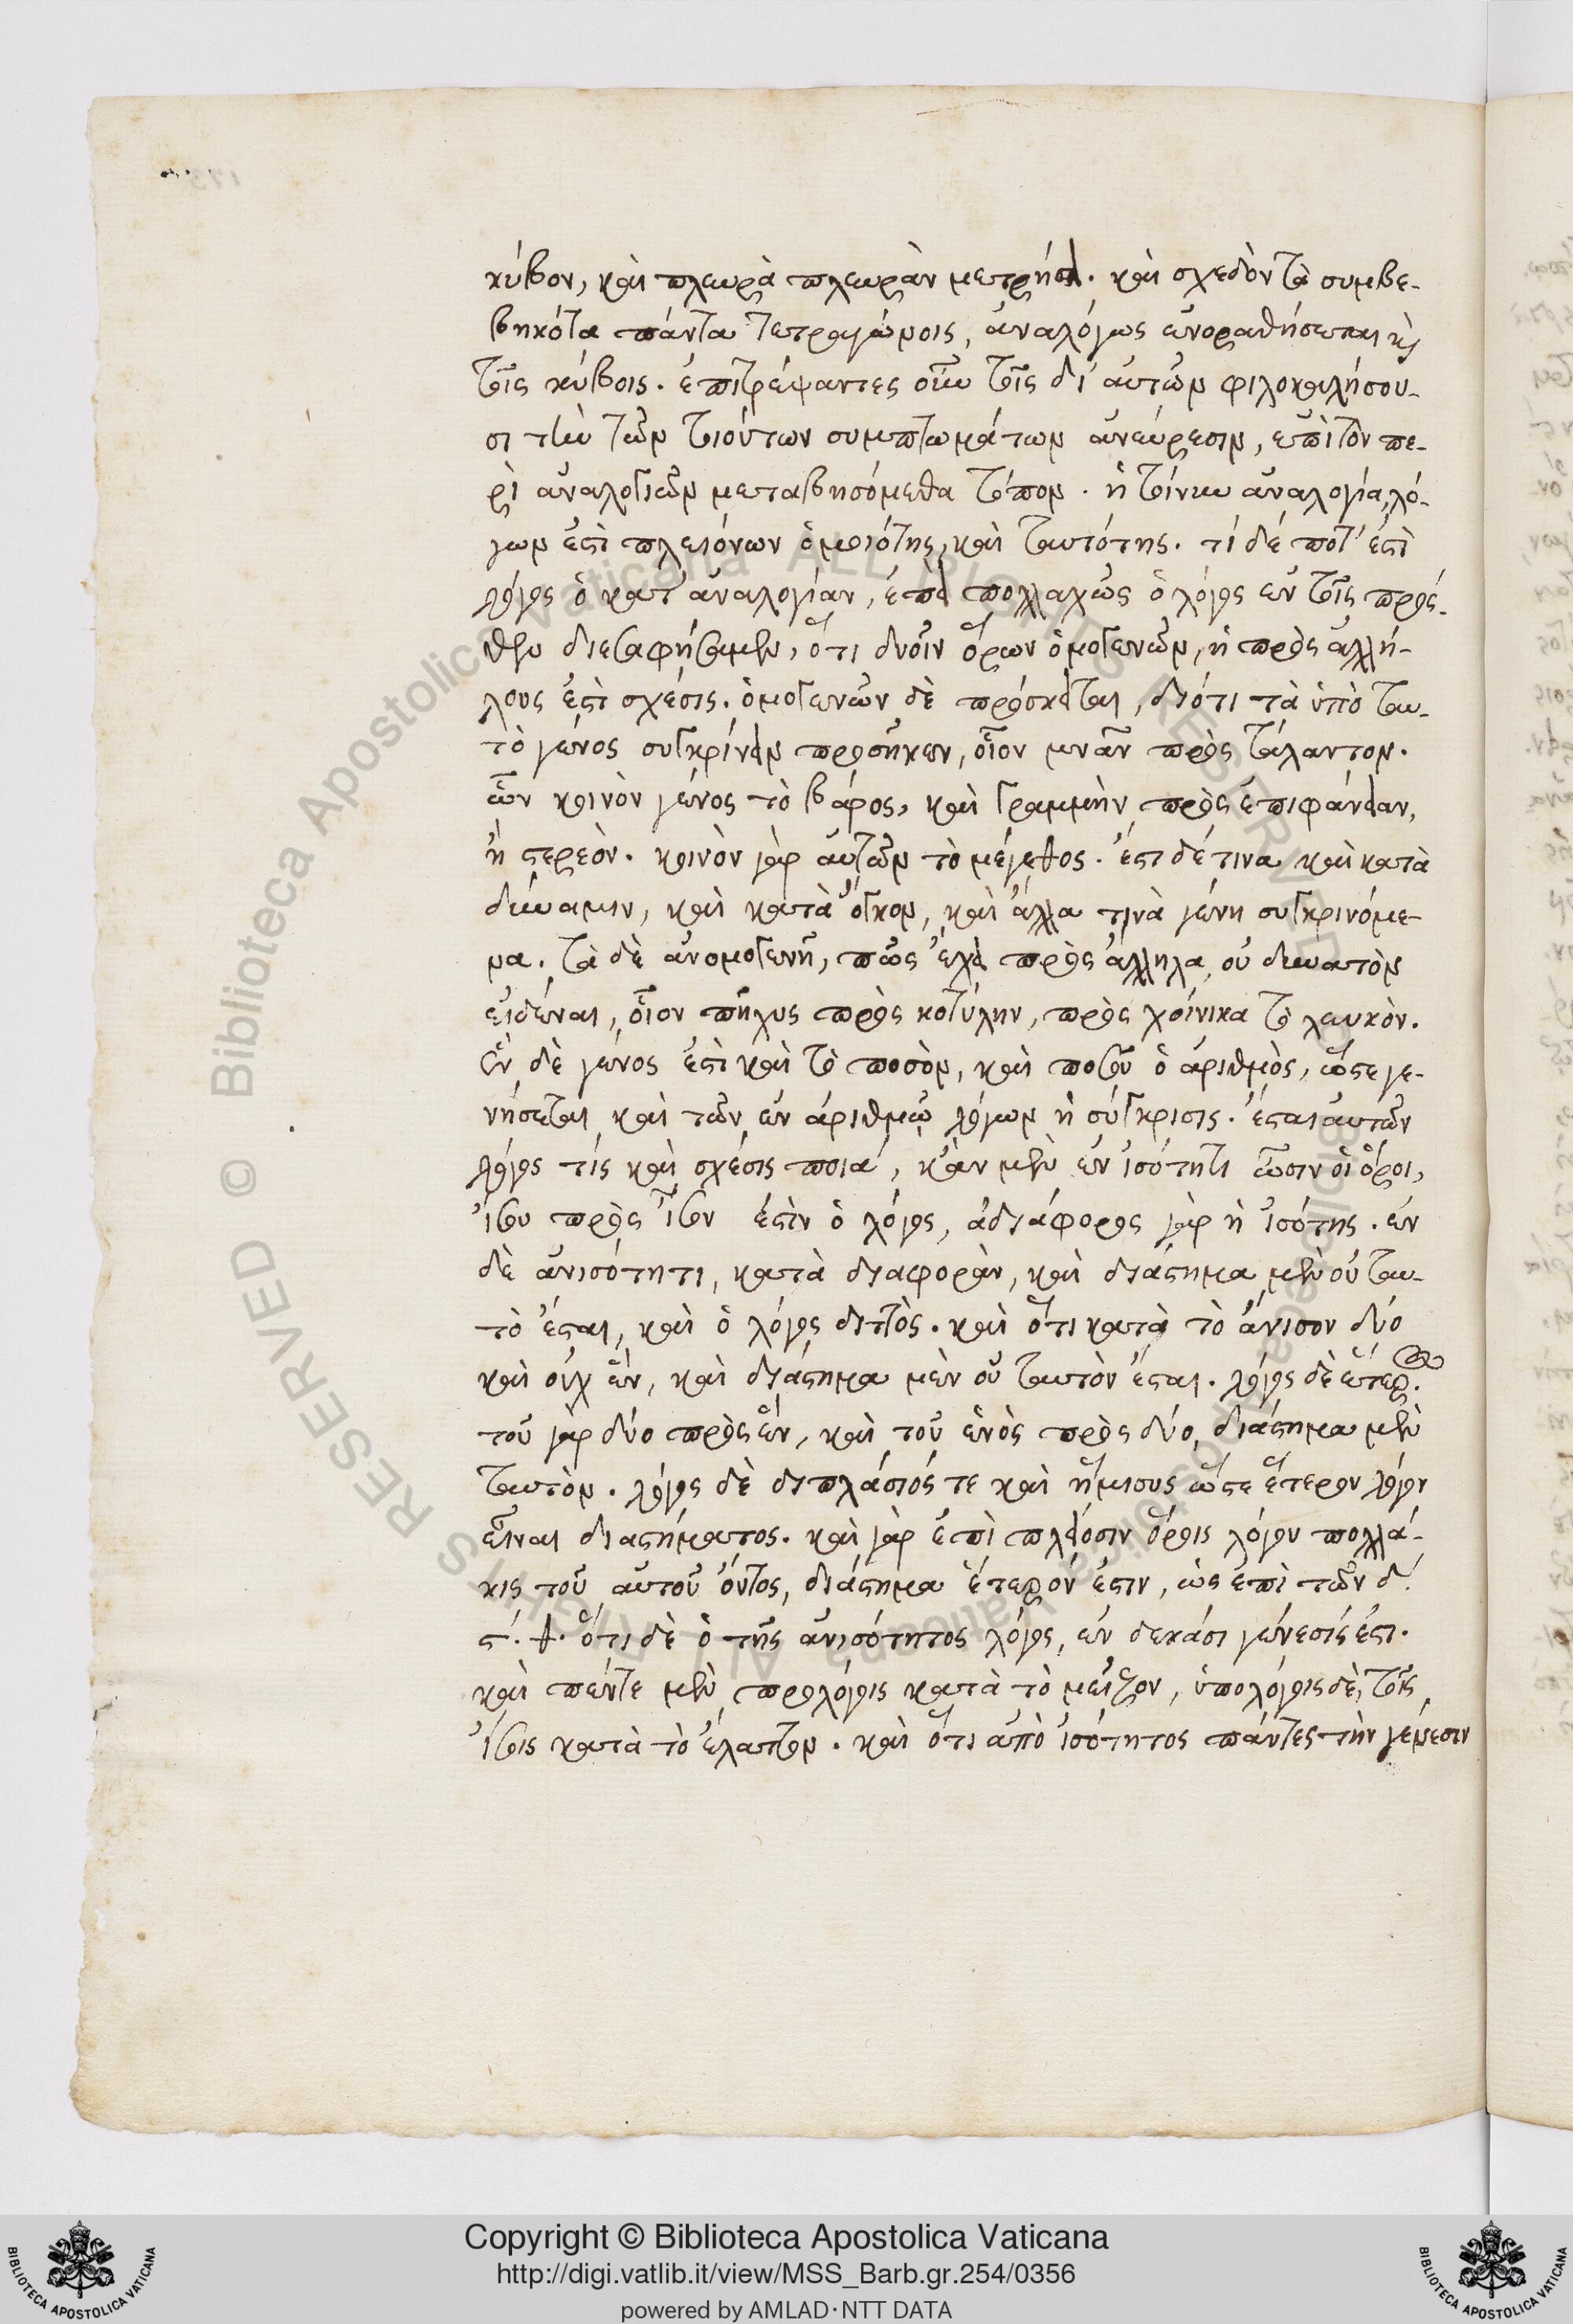 κύβον, καὶ πλευρὰ πλευρὰν μετρήσει. καὶ σχεδὸν τὰ συμβε-
βηκότα πάντα τετραγώνοις, ἀναλόγως ἐνοραθήσεται κὶ
τοῖς κύβοις. ἐπιτρέψαντες οὖν τοῖς δι' αὐτῶν φιλοκαλήσου-
σι τὴν τῶν τοιούτων συμπτωμάτων ἀνεύρεσιν, ἐπὶ τὸν πε-
ρὶ ἀναλογιῶν μεταβησόμεθα τόπον. ἡ τοίνυν ἀναλογία, λό-
γων ἐστὶ πλειόνων ὁμοιότης, καὶ ταυτότης. τί δέ ποτ' ἐστὶ
λόγος ὁ κατ' ἀναλογίαν, ἐπεὶ πολλαχῶς ὁ λόγος ἐν τοῖς πρόσ-
θεν διεσαφήσαμεν, ὅτι δυοῖν ὅρων ὁμογενῶν, ἡ πρὸς ἀλλή-
λους ἐστὶ σχέσις. ὁμογενῶν δὲ πρόσκειται, διότι τὰ ὑπὸ ταυ-
τὸ γένος συγκρίνειν προσῆκεν, οἷον μνᾶν πρὸς τάλαντον.
ὧν κοινὸν γένος τὸ βάρος, καὶ γραμμὴν πρὸς ἐπιφάνειαν,
ἢ στερεόν. κοινὸν γὰρ αὐτῶν τὸ μέγεθος. ἔστι δέ τινα καὶ κατὰ
δύναμιν, καὶ κατὰ ὄγκον, καὶ ἄλλα τινὰ γένη συγκρινόμε-
να. τὰ δὲ ἀνομογενῆ, πῶς ἔχει πρὸς ἄλληλα οὐ δυνατὸν
εἰδέναι, οἷον πῆχυς πρὸς κοτύλην, πρὸς χοίνικα τὸ λευκὸν.
ἓν δὲ γένος ἐστὶ καὶ τὸ ποσὸν, καὶ ποσοῦ ὁ ἀριθμὸς, ὥστε γε-
νήσεται καὶ τῶν ἐν ἀριθμῷ λόγων ἡ σύγκρισις. ἔσται αὐτῶν
λόγος τίς καὶ σχέσις ποιά, κἂν μὲν ἐν ἰσότητι ὦσιν οἱ ὅροι,
ἴσου πρὸς ἶσον ἐστὶν ὁ λόγος, ἀδιάφορος γὰρ ἡ ἰσότης. ἐν
δὲ ἀνισότητι, κατὰ διαφορὰν, καὶ διάστημα μὲν οὐ ταυ-
τὸ ἔσται, καὶ ὁ λόγος διττὸς. καὶ ὅτι κατὰ τὸ ἄνισον δύο
καὶ οὐχ ἕν, καὶ διάστημα μὲν οὐ ταυτὸν ἔσται. λόγος δὲ ἕτερος.
τοῦ γὰρ δύο πρὸς ἓν, καὶ τοῦ ἑνὸς πρὸς δύο, διάστημα μὲν
ταυτὸν. λόγος δὲ διπλάσιός τε καὶ ἥμισυς ὥστε ἕτερον λόγον
εἶναι διαστήματος. καὶ γὰρ ἐπὶ πλείοσιν ὅροις λόγου πολλά-
κις τοῦ αὐτοῦ ὄντος, διάστημα ἕτερόν ἐστιν, ὡς ἐπὶ τῶν δ.
ϛ. θ. ὅτι δὲ ὁ τῆς ἀνισότητος λόγος, ἐν δεκάσι γένεσίς ἐστι.
καὶ πέντε μὲν προλόγοις κατὰ τὸ μεῖζον, ὑπολόγοις δὲ, τοῖς
ἴσοις κατὰ τὸ ἔλαττον. καὶ ὅτι ἀπὸ ἰσότητος πάντες τὴν γένεσιν
Copyright © Biblioteca Apostolica Vaticana
http://digi.vatlib.it/view/MSS_Barb.gr.254/0356
powered by AMLAD·NTT DATA